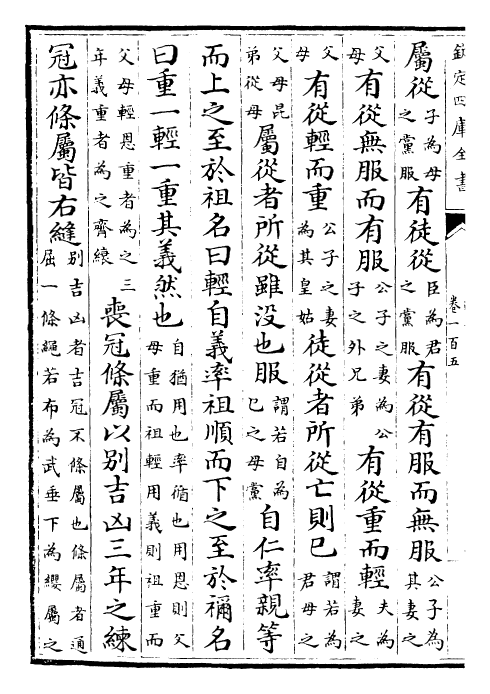 欽定四庫全書
卷一百五
屬從子為母之黨服有徒從臣為君之黨服有從有服而無服公子為其妻之
父母有從無服而有服公子之妻為公子之外兄弟有從重而輕夫為妻之
父母有從輕而重公子之妻為其皇姑徒從者所從亡則已謂若為君母之
父母昆弟從母屬從者所從雖没也服謂若自為已之母黨自仁率親等
而上之至於祖名曰輕自義率祖順而下之至於禰名
曰重一輕一重其義然也自猶用也率循也用恩則父母重而祖輕用義則祖重而
父母輕恩重者為之三年義重者為之齊縗喪冠條屬以别吉凶三年之練
冠亦條屬皆右縫别吉凶者吉冠不條屬也條屬者通屈一條繩若布為武垂下為纓屬之